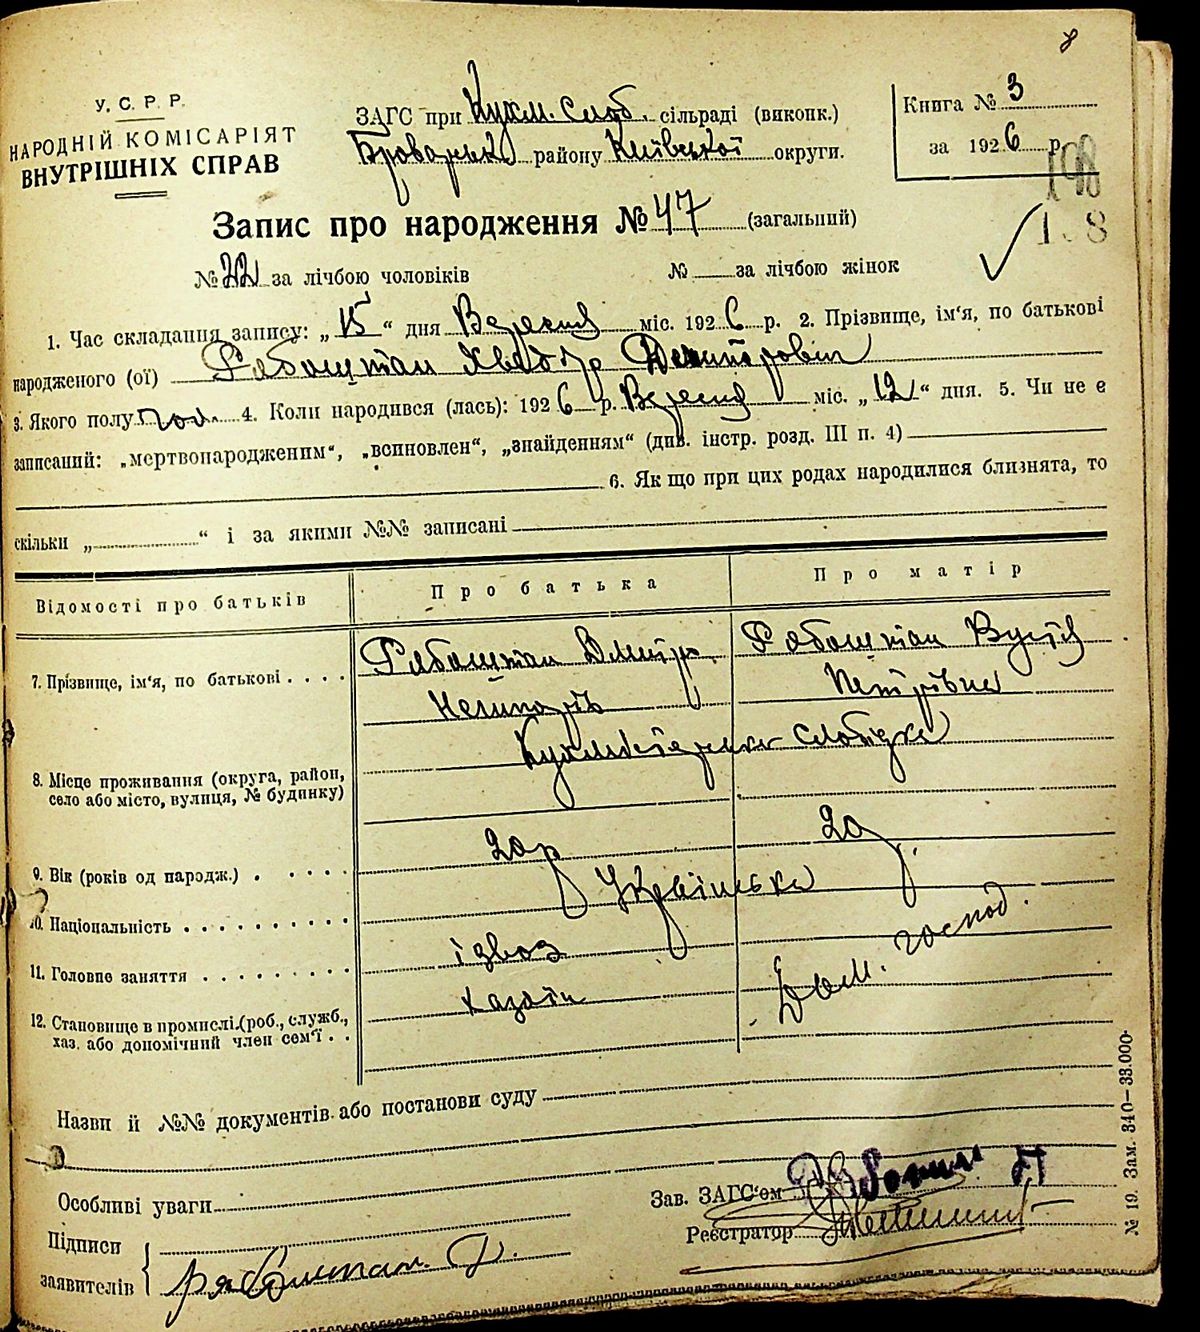 8
У. С. Р. Р.
НАРОДНІЙ КОМІСАРІЯТ
ВНУТРІШНІХ СПРАВ
ЗАГС при Кухм. Слоб. сільраді (виконк.)
Броварськ району Київської округи.
Книга № 3
за 1926 р.
198
Запис про народження № 47 (загальний)
№ 22 за лічбою чоловіків № за лічбою жінок
1 8
1. Час складання запису: „15“ дня Вересня міс. 1926 р. 2. Прізвище, ім‘я, по батькові
народженого (ої) Рябоштан Хведір Дмитрович
3. Якого полу чол. 4. Коли народився (лась): 1926 р. Вересня міс. „12“ дня. 5. Чи не є
записаний: „мертвонародженим“, „всиновлен“, „знайденням“ (див. інстр. розд. III п. 4)
6. Як що при цих родах народилися близнята, то
скільки „ “ і за якими №№ записані
Відомості про батьків Про батька Про матір
7. Прізвище, ім‘я, по батькові . . . . Рябоштан Дмитро Рябоштан Вустя
Петрівна
8. Місце проживання (округа, район,
село або місто, вулиця, № будинку) Кухмістерська Слобідка
9. Вік (років од народж.) . . . . . 20р 20
10. Національність . . . . . . . . . Українська
11. Головне заняття . . . . . . . . ізвоз
12. Становище в промислі (роб., служб.,
хаз. або допомічний член сем‘ї . . хазяїн Дом. господ.
Назви й №№ документів або постанови суду
Особливі уваги
Зав. ЗАГС‘ом
Реєстратор
Підписи
заявителів Рябоштан Д.
№ 19. Зам. 340—33.000·